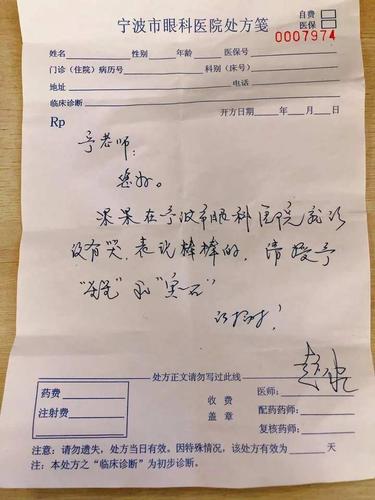 宁波市眼科医院处方笺
自费
医保
0007974
姓名 性别 年龄 医保号
门诊（住院）病历号 科别（床号）
地址 电话
临床诊断 开方日期 年 月 日
Rp
于老师：
您好。
果果在宁波市眼科医院就诊
没有哭，表现棒棒的，请授予
和“宝石”
谢谢！
处方正文请勿写过此线
药费
注射费
收费
盖章
医师：
配药药师：
复核药师：
注意：请勿遗失，处方当日有效。因特殊情况，该处方有效为 天
注：本处方之“临床诊断”为初步诊断。